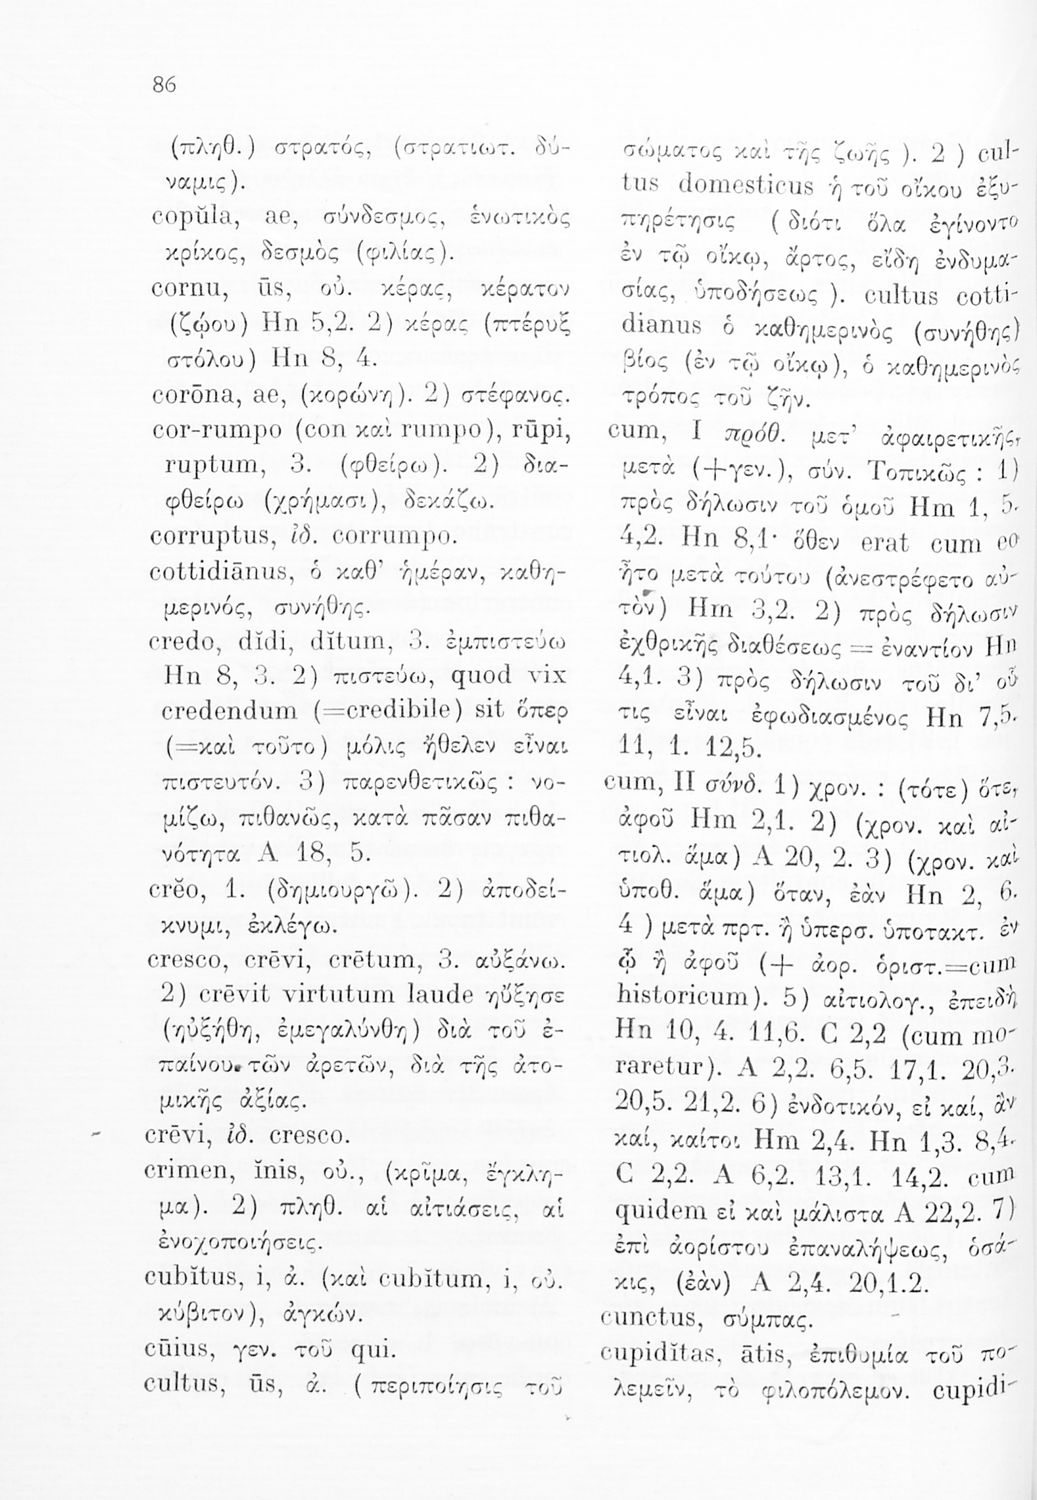 86
(πληθ.) στρατός, (στρατιωτ. δύ-
ναμις).
copŭla, ae, σύνδεσμος, ἑνωτικὸς
κρίκος, δεσμὸς (φιλίας).
cornu, ūs, οὐ. κέρας, κέρατον
(ζῴου) Hn 5,2. 2) κέρας (πτέρυξ
στόλου) Hn 8, 4.
corōna, ae, (κορώνη). 2) στέφανος.
cor-rumpo (con καὶ rumpo), rūpi,
ruptum, 3. (φθείρω). 2) δια-
φθείρω (χρήμασι), δεκάζω.
corruptus, ἰδ. corrumpo.
cottidiānus, ὁ καθ’ ἡμέραν, καθη-
μερινός, συνήθης.
credo, dĭdi, dĭtum, 3. ἐμπιστεύω
Hn 8, 3. 2) πιστεύω, quod vix
credendum (=credibile) sit ὅπερ
(=καὶ τοῦτο) μόλις ἤθελεν εἶναι
πιστευτόν. 3) παρενθετικῶς : νο-
μίζω, πιθανῶς, κατὰ πᾶσαν πιθα-
νότητα A 18, 5.
crĕo, 1. (δημιουργῶ). 2) ἀποδεί-
κνυμι, ἐκλέγω.
cresco, crēvi, crētum, 3. αὐξάνω.
2) crēvit virtutum laude ηὔξησε
(ηὐξήθη, ἐμεγαλύνθη) διὰ τοῦ ἐ-
παίνου τῶν ἀρετῶν, διὰ τῆς ἀτο-
μικῆς ἀξίας.
crēvi, ἰδ. cresco.
crimen, ĭnis, οὐ., (κρῖμα, ἔγκλη-
μα). 2) πληθ. αἱ αἰτιάσεις, αἱ
ἐνοχοποιήσεις.
cubĭtus, i, ἀ. (καὶ cubĭtum, i, οὐ.
κύβιτον), ἀγκών.
cūius, γεν. τοῦ qui.
cultus, ūs, ἀ. ( περιποίησις τοῦ
σώματος καὶ τῆς ζωῆς ). 2 ) cul-
tus domesticus ἡ τοῦ οἴκου ἐξυ-
πηρέτησις ( διότι ὅλα ἐγίνοντο
ἐν τῷ οἴκῳ, ἄρτος, εἴδη ἐνδυμα-
σίας, ὑποδήσεως ). cultus cotti-
dianus ὁ καθημερινὸς (συνήθης)
βίος (ἐν τῷ οἴκῳ), ὁ καθημερινὸς
τρόπος τοῦ ζῆν.
cum, I πρόθ. μετ’ ἀφαιρετικῆς,
μετὰ (+γεν.), σύν. Τοπικῶς : 1)
πρὸς δήλωσιν τοῦ ὁμοῦ Hm 1, 5.
4,2. Hn 8,1· ὅθεν erat cum eo
ἦτο μετὰ τούτου (ἀνεστρέφετο αὐ-
τὸν) Hm 3,2. 2) πρὸς δήλωσιν
ἐχθρικῆς διαθέσεως = ἐναντίον Hn
4,1. 3) πρὸς δήλωσιν τοῦ δι’ οὗ
τις εἶναι ἐφωδιασμένος Hn 7,5.
11, 1. 12,5.
cum, II σύνδ. 1) χρον. : (τότε) ὅτε,
ἀφοῦ Hm 2,1. 2) (χρον. καὶ αἰ-
τιολ. ἅμα) A 20, 2. 3) (χρον. καὶ
ὑποθ. ἅμα) ὅταν, ἐὰν Hn 2, 6.
4 ) μετὰ πρτ. ἢ ὑπερσ. ὑποτακτ. ἐν
ᾧ ἢ ἀφοῦ (+ ἀορ. ὁριστ.=cum
historicum). 5) αἰτιολογ., ἐπειδὴ
Hn 10, 4. 11,6. C 2,2 (cum mo-
raretur). A 2,2. 6,5. 17,1. 20,3.
20,5. 21,2. 6) ἐνδοτικόν, εἰ καί, ἂν
καί, καίτοι Hm 2,4. Hn 1,3. 8,4.
C 2,2. A 6,2. 13,1. 14,2. cum
quidem εἰ καὶ μάλιστα A 22,2. 7)
ἐπὶ ἀορίστου ἐπαναλήψεως, ὁσά-
κις, (ἐὰν) A 2,4. 20,1.2.
cunctus, σύμπας.
cupidĭtas, ātis, ἐπιθυμία τοῦ πο-
λεμεῖν, τὸ φιλοπόλεμον. cupidi-